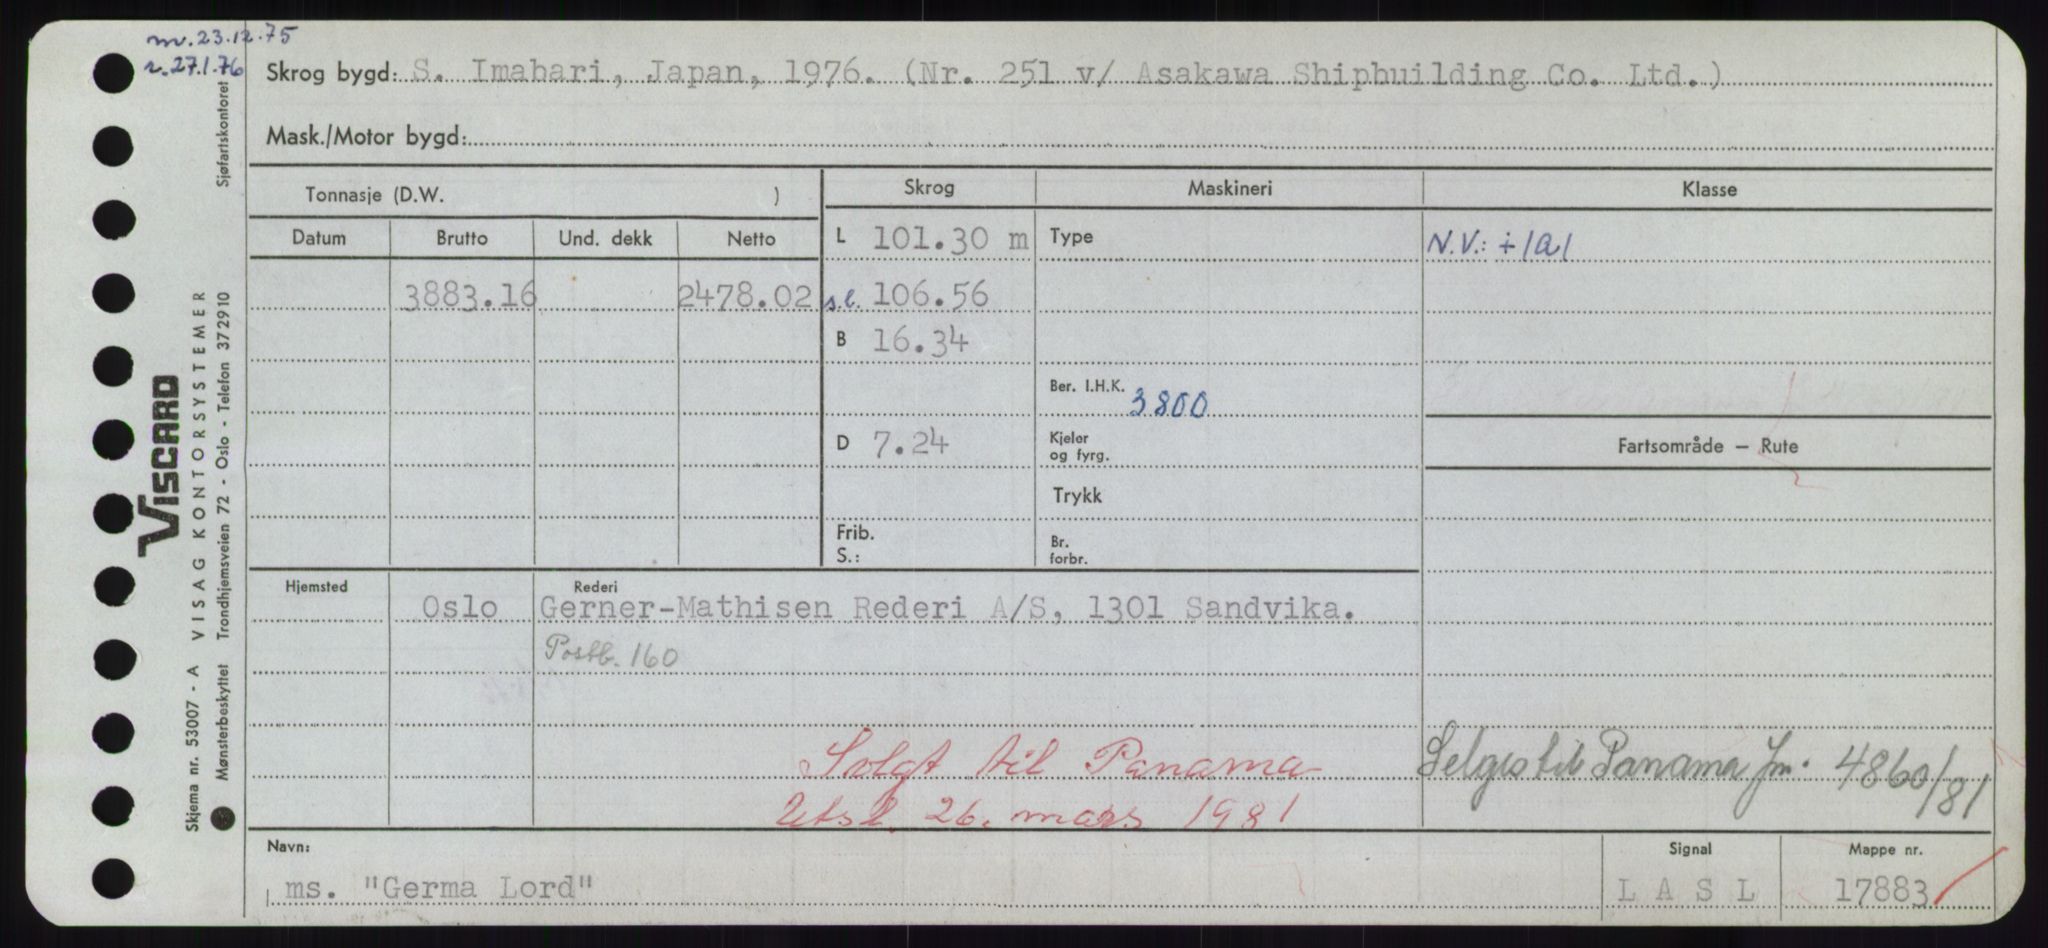 m.23.12.75
r.27.1.76
Skrog bygd: S. Imabari, Japan, 1976. (Nr. 251 v/ Asakawa Shipbuilding Co. Ltd.)
Mask./Motor bygd:
Tonnasje (D.W. )
Skrog
Maskineri
Klasse
Datum
Brutto
Und. dekk
Netto
L 101.30 m
Type
N.V.: +1A1
3883.16
2478.02
s.l. 106.56
B 16.34
Ber. I.H.K. 3800
D 7.24
Kjeler
og fyrg.
Fartsområde — Rute
Trykk
Frib.
S.:
Br.
forbr.
Hjemsted
Rederi
Oslo
Gerner-Mathisen Rederi A/S, 1301 Sandvika.
Postb. 160
Solgt til Panama
Utsl. 26. mars 1981
Selges til Panama Jnr. 4860/81
Navn:
Signal
Mappe nr.
ms. "Germa Lord"
L A S L
17883
Skjema nr. 53007 - A VISAG KONTORSYSTEMER
VISCARD
Mønsterbeskyttet Trondhjemsveien 72 - Oslo - Telefon 372910
Sjøfartskontoret